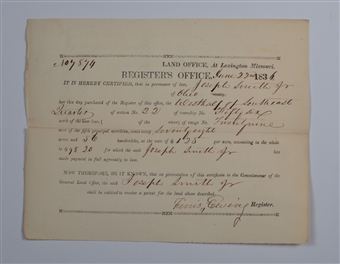 No 7874
LAND OFFICE, At Lexington Missouri,
REGISTER'S OFFICE, June 22nd 1836
IT IS HEREBY CERTIFIED, that in pursuance of law, Joseph Smith Jr
of Ohio
has this day purchased of the Register of this office, the West half of Southeast
Quarter of section No. 22 of township No. Fifty six
north of range No. Twenty nine
west of the fifth principal meridian, containing Seventy eight
acres and 56 hundredths, at the rate of $1 25 per acre, amounting in the whole
to $98 20 for which the said Joseph Smith Jr
made payment in full agreeably to law.
NOW THEREFORE, BE IT KNOWN, that on presentation of this certificate to the Commissioner of the
General Land Office, the said Joseph Smith Jr
shall be entitled to receive a patent for the land above described.
Finis Ewing Register.